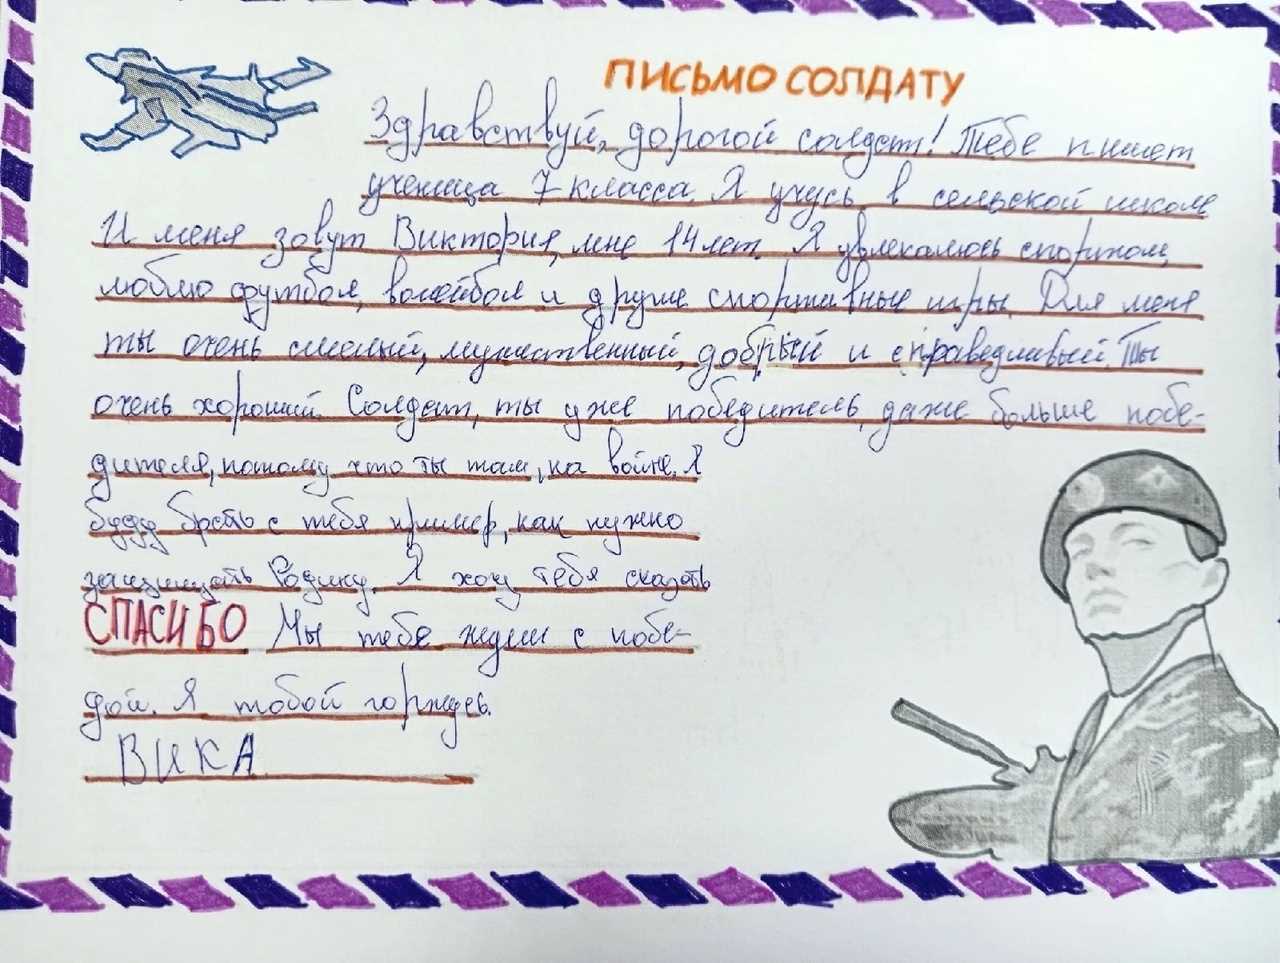 ПИСЬМО СОЛДАТУ
Здравствуй, дорогой солдат! Тебе пишет
ученица 7 класса. Я учусь в сельской школе
И меня зовут Виктория, мне 14 лет. Я увлекаюсь спортом,
люблю футбол, волейбол и другие спортивные игры. Для меня
ты очень смелый, мужественный, добрый и справедливый. Ты
очень хороший. Солдат, ты уже победитель, даже больше побе-
дителя, потому что ты там, на войне. Я
буду брать с тебя пример, как нужно
защищать Родину. Я хочу тебя сказать
СПАСИБО Мы тебя ждём с побе-
дой. Я тобой горжусь.
ВИКА